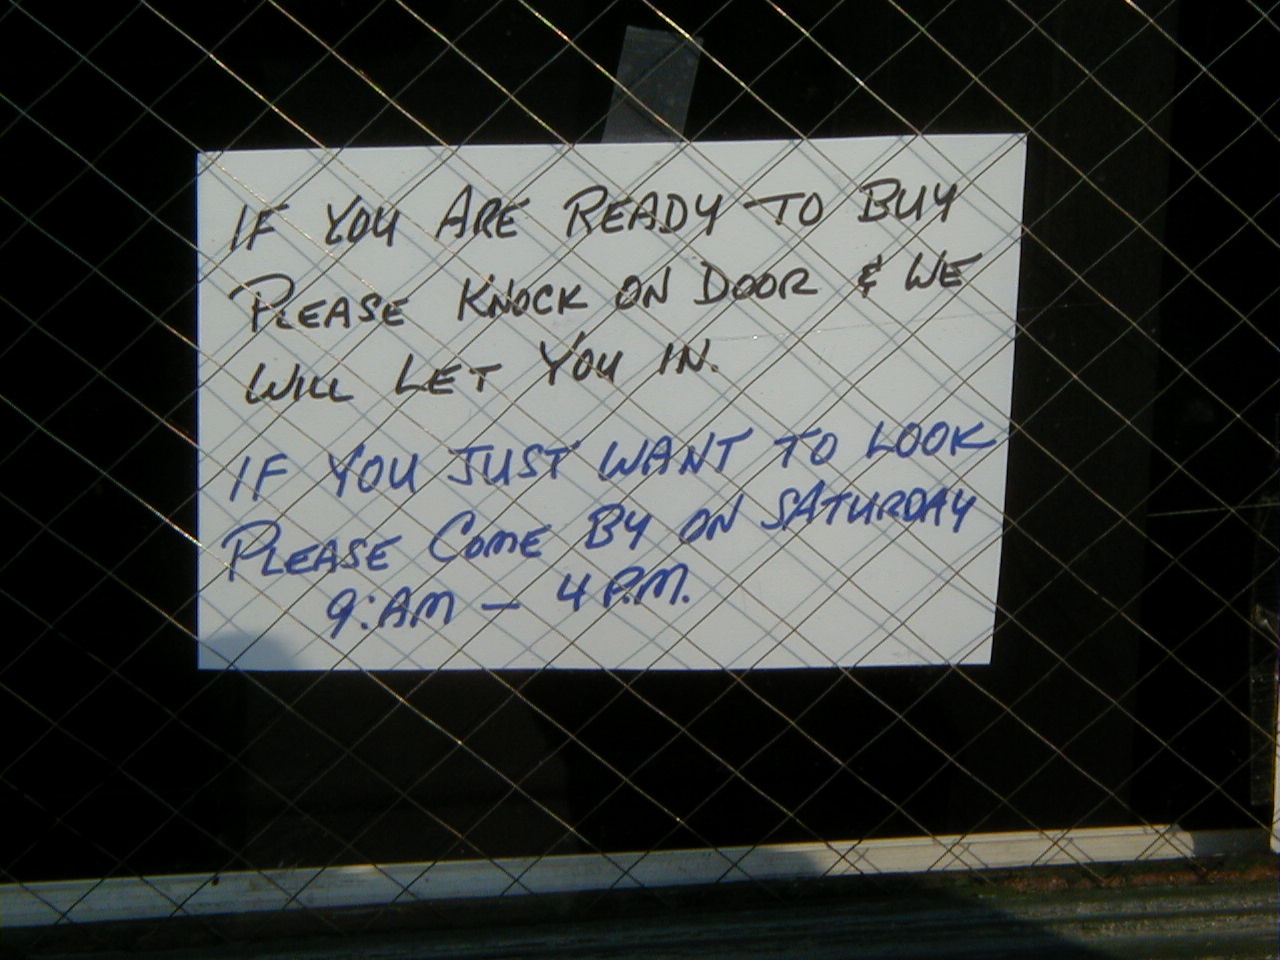 IF YOU ARE READY TO BUY
PLEASE KNOCK ON DOOR & WE
WILL LET YOU IN.
IF YOU JUST WANT TO LOOK
PLEASE COME BY ON SATURDAY
9:AM — 4 P.M.